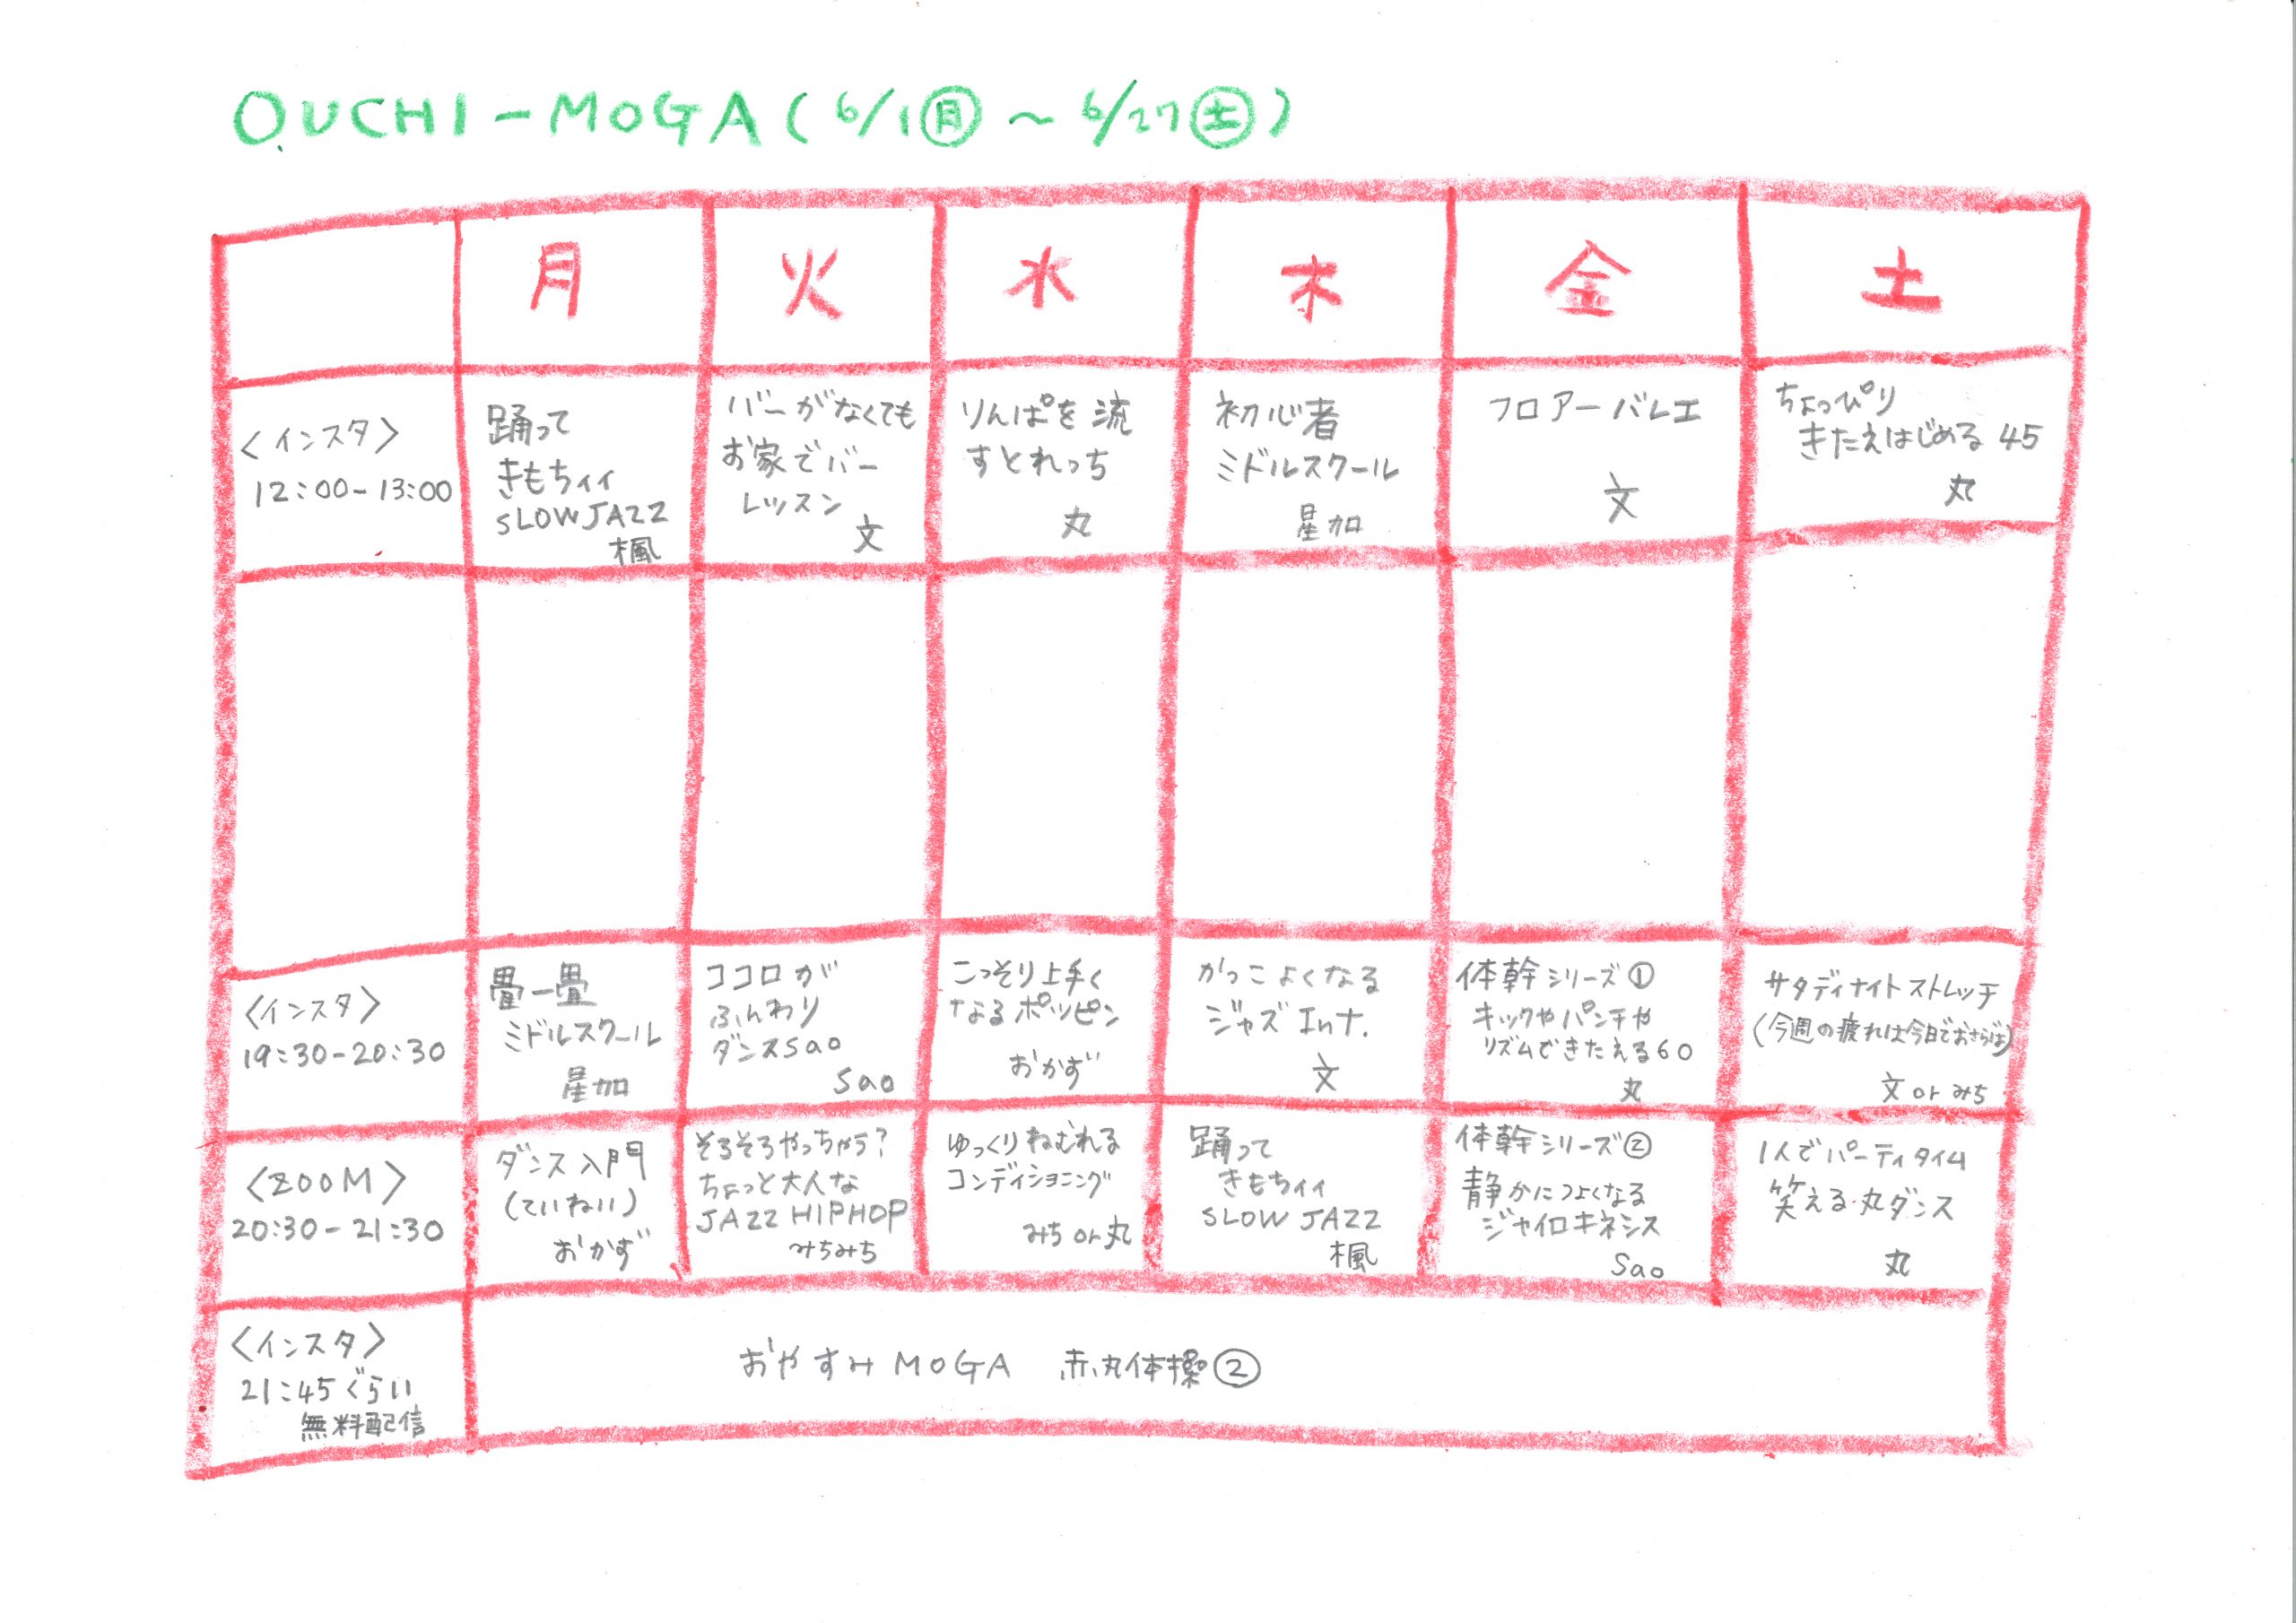 OUCHI-MOGA(6/1㊊～6/27㊏)
月 火 水 木 金 土
＜インスタ＞
12:00-13:00
踊って
きもちィィ
SLOW JAZZ
楓
バーがなくても
お家でバー
レッスン
文
りんぱを流
すとれっち
丸
初心者
ミドルスクール
星加
フロアーバレエ
文
ちょっぴり
きたえはじめる45
丸
＜インスタ＞
19:30-20:30
畳一畳
ミドルスクール
星加
ココロが
ふんわり
ダンスsao
Sao
こっそり上手く
なるポッピン
おかず
かっこよくなる
ジャズInt.
文
体幹シリーズ①
キックやパンチや
リズムできたえる60
丸
サタディナイトストレッチ
(今週の疲れは今日でおさらば)
文orみち
＜ZOOM＞
20:30-21:30
ダンス入門
(ていねい)
おかず
そろそろやっちゃう?
ちょっと大人な
JAZZ HIPHOP
みちみち
ゆっくりねむれる
コンディショニング
みちor丸
踊って
きもちィィ
SLOW JAZZ
楓
体幹シリーズ②
静かにつよくなる
ジャイロキネシス
Sao
1人でパーティタイム
笑える丸ダンス
丸
＜インスタ＞
21:45ぐらい
無料配信
おやすみMOGA 赤丸体操②